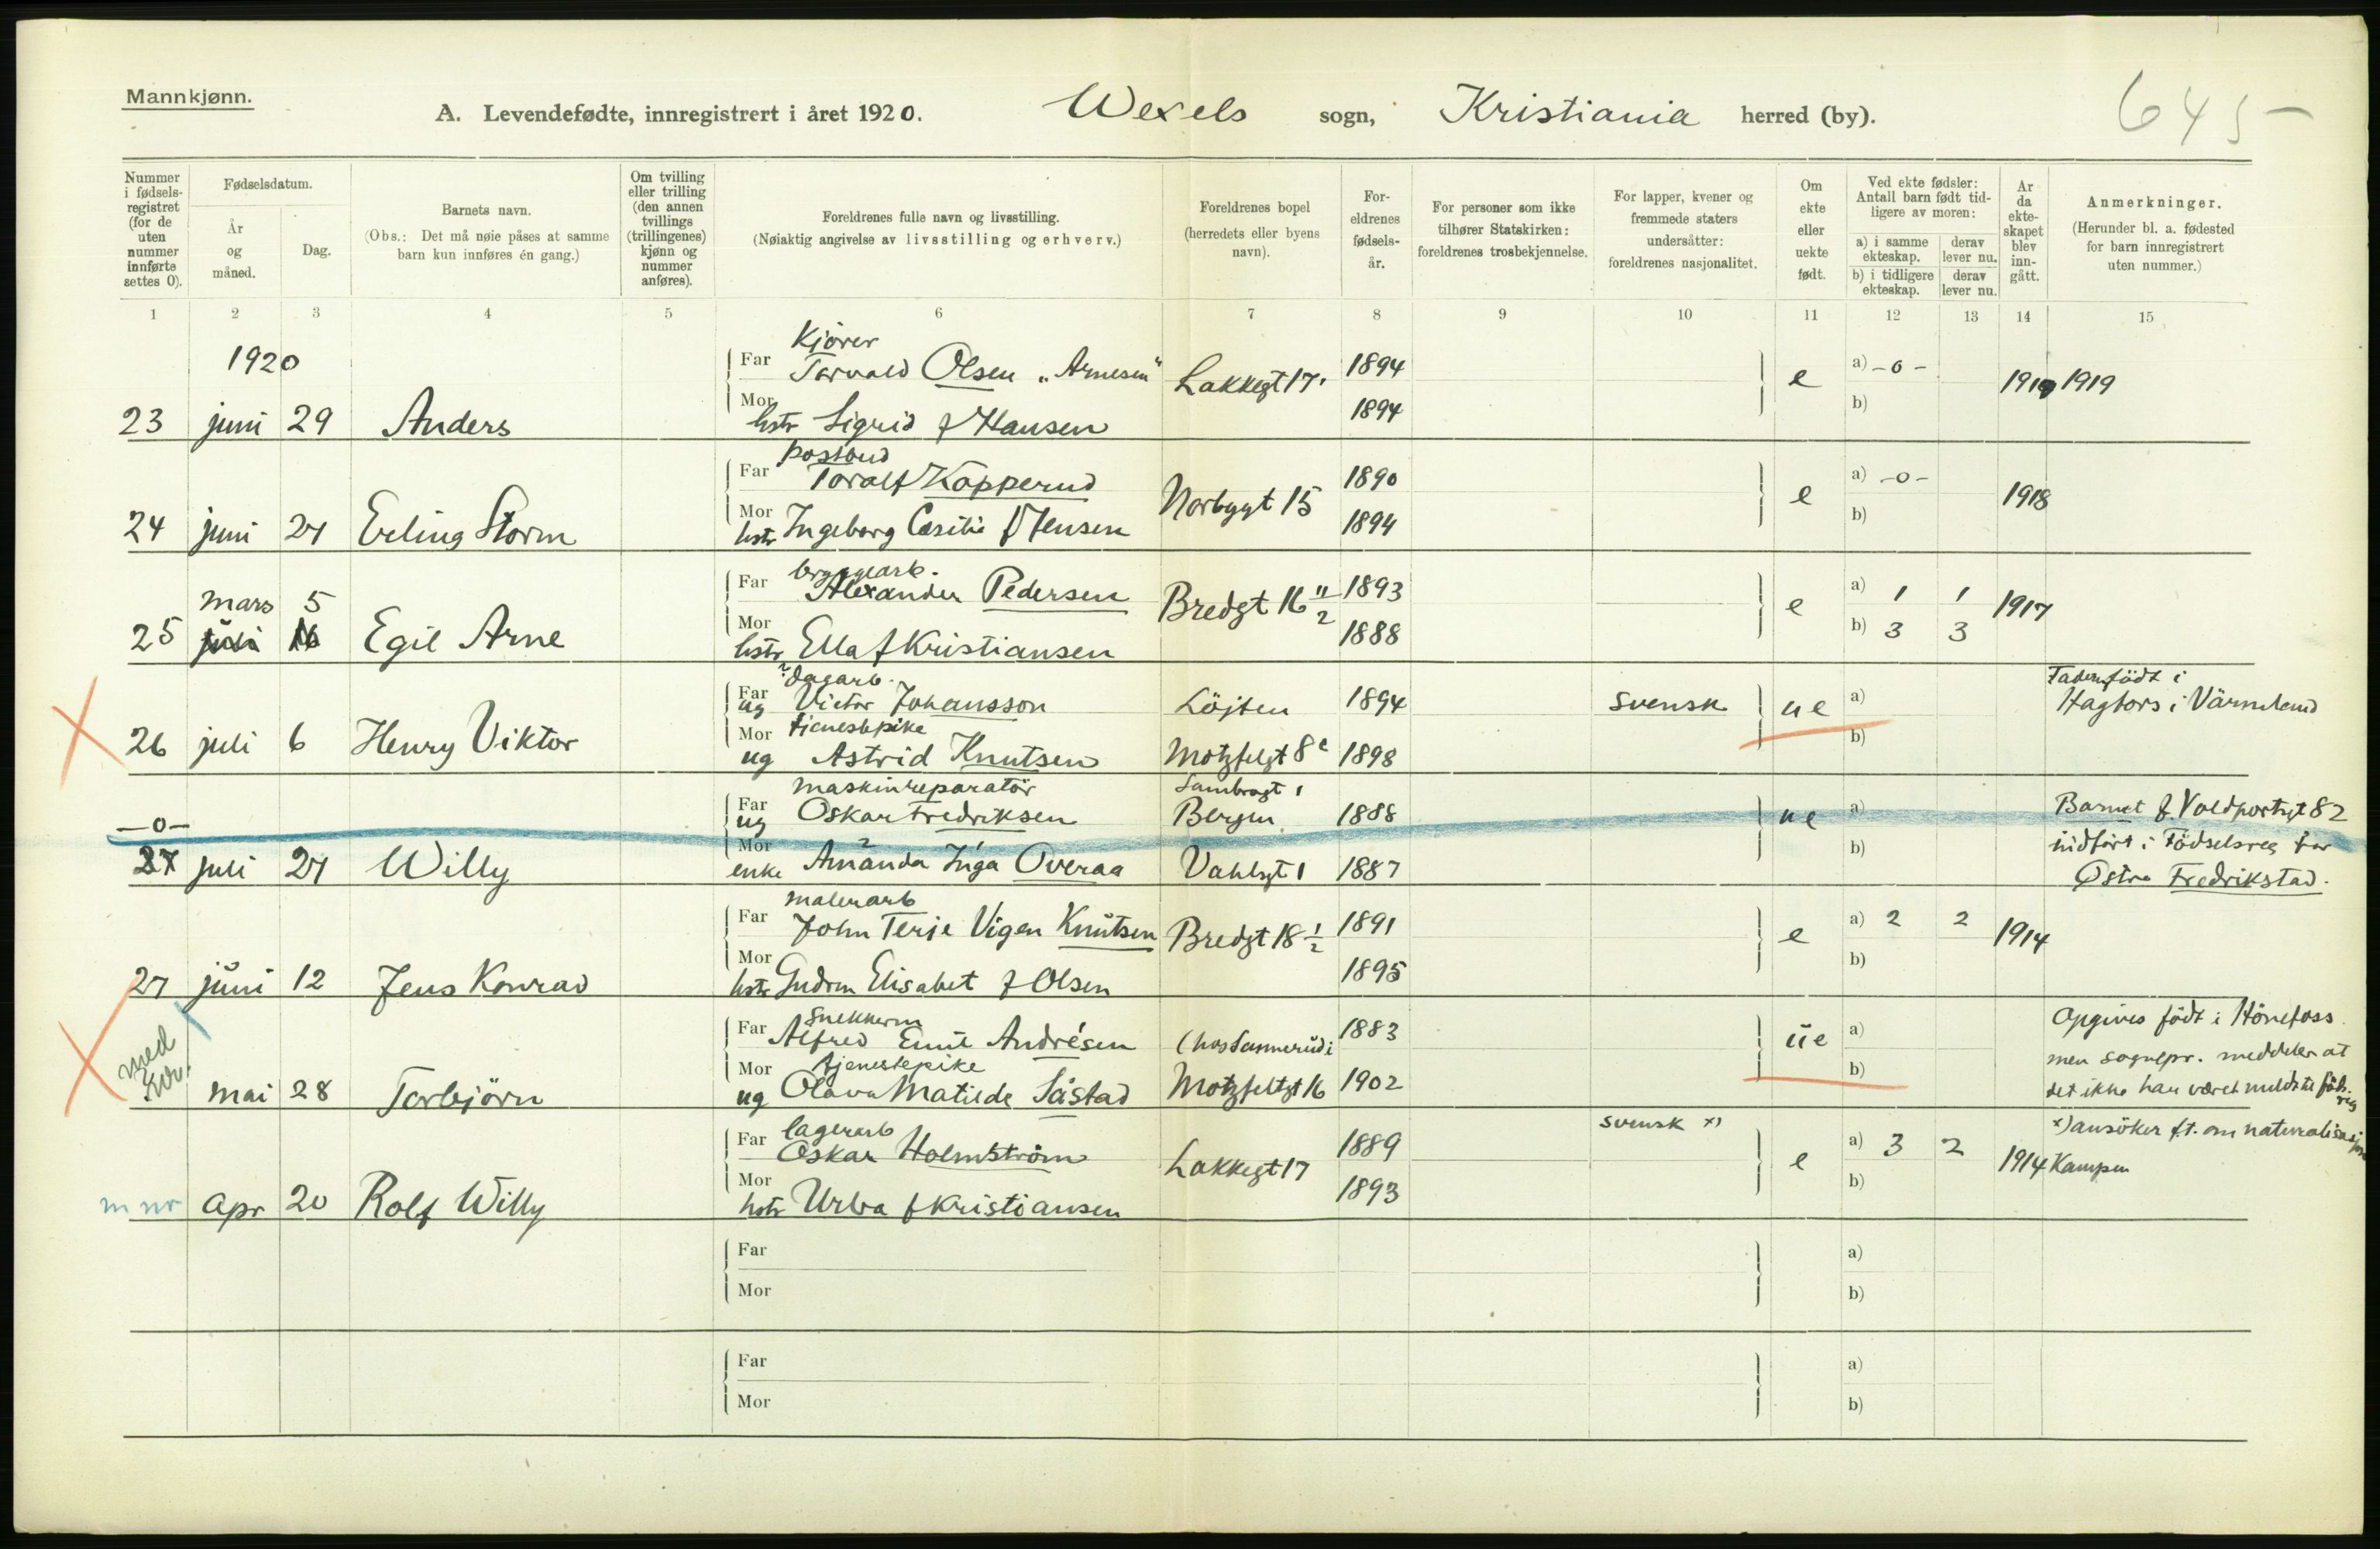 Mannkjønn.
A. Levendefødte, innregistrert i året 1920. Wexels sogn, Kristiania herred (by).
645-
Nummer i fødsels-registret (for de uten nummer innførte settes 0).
Fødselsdatum.
År og måned.
Dag.
Barnets navn.
(Obs.: Det må nøie påses at samme barn kun innføres én gang.)
Om tvilling eller trilling (den annen tvillings (trillingenes) kjønn og nummer anføres).
Foreldrenes fulle navn og livsstilling.
(Nøiaktig angivelse av livsstilling og erhverv.)
Foreldrenes bopel (herredets eller byens navn).
For-eldrenes fødsels-år.
For personer som ikke tilhører Statskirken: foreldrenes trosbekjennelse.
For lapper, kvener og fremmede staters undersåtter: foreldrenes nasjonalitet.
Om ekte eller uekte født.
Ved ekte fødsler: Antall barn født tid-ligere av moren:
a) i samme ekteskap. derav lever nu.
b) i tidligere ekteskap. derav lever nu.
År da ekte-skapet blev inn-gått.
Anmerkninger.
(Herunder bl. a. fødested for barn innregistrert uten nummer.)
1 2 3 4 5 6 7 8 9 10 11 12 13 14 15
1920
Kjörer
Far Torvald Olsen „Arnesen" Lakkegt 17 1894 e a) -0- 1919 1919
23 juni 29 Anders Mor hstr Sigrid f Hansen 1894 b)
postbud
Far Toralf Kopperud Norbygt 15 1890 e a) -0- 1918
24 juni 27 Erling Storm Mor hstr Ingeborg Cesilie f Jensen 1894 b)
bryggearb.
mars 5 Far Alexander Pedersen Bredgt 16 11/2 1893 e a) 1 1 1917
25 juli 16 Egil Arne Mor hstr Ella f Kristiansen 1888 b) 3 3
dagarb.
Far ug Victor Johansson Löjten 1894 svensk ue a) Faderen födt i Hagfors i Värmland
tjenestepike
26 juli 6 Henry Viktor Mor ug Astrid Knutsen Motzfelgt 8e 1898 b)
maskinreparatör
-0- Far ug Oskar Fredriksen Bergen 1888 ue a) Barnet f. Voldportgt 82
27 juli 27 Willy Mor enke Amanda Inga Overaa Vahlsgt 1 1887 b) indfört i Födselsreg for
Östre Fredrikstad.
malerarb
Far John Terje Vigen Knutsen Bredgt 18 1/2 1891 e a) 2 2 1914
27 juni 12 Jens Konrad Mor hstr Gudrun Elisabet f Olsen 1895 b)
snekkerm
Far Alfred Emil Andrésen (hos Sannerud i 1883 ue a) Opgives födt i Hönefoss
tjenestepike
men sognepr. meddeler at
med nr. mai 28 Torbjörn Mor ug Olava Matilde Såstad Motzfeltgt 16 1902 b) det ikke har været meldt til föds. reg
lagerarb
Far Oskar Holmström Lakkegt 17 1889 svensk x) e a) 3 2 1914 x) ansöker f.t. om naturalisasjon
Kampen
m nr apr 20 Rolf Willy Mor hstr Urba f Kristiansen 1893 b)
Far a)
Mor b)
Far a)
Mor b)